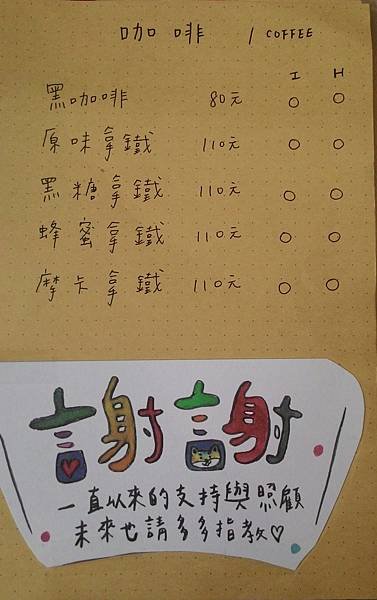 咖啡 / COFFEE
I H
黑咖啡 80元 ○ ○
原味拿鐵 110元 ○ ○
黑糖拿鐵 110元 ○ ○
蜂蜜拿鐵 110元 ○ ○
摩卡拿鐵 110元 ○ ○
謝謝
一直以來的支持與照顧
未來也請多多指教♡